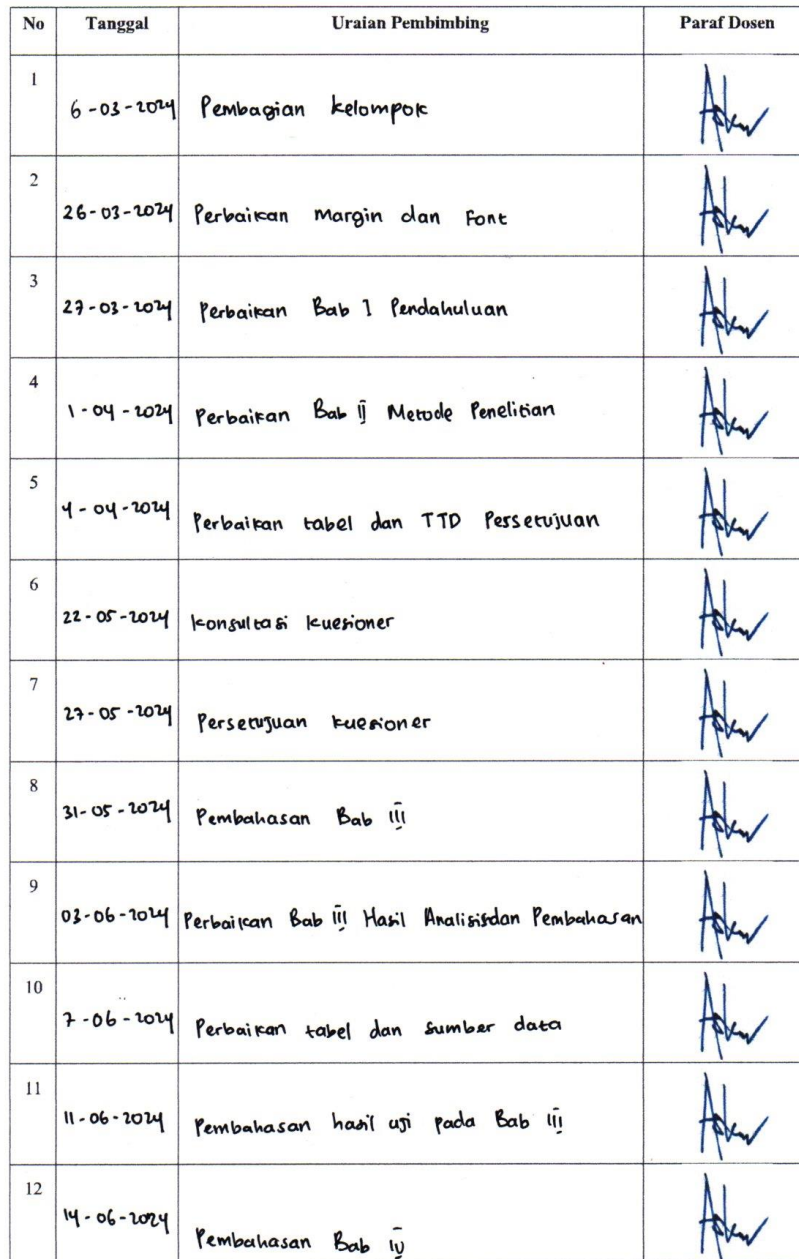 No Tanggal Uraian Pembimbing Paraf Dosen
1 6-03-2024 Pembagian kelompok
2 26-03-2024 Perbaikan Margin dan Font
3 27-03-2024 Perbaikan Bab I Pendahuluan
4 1-04-2024 Perbaikan Bab II Metode Penelitian
5 4-04-2024 Perbaikan tabel dan TTD Persetujuan
6 22-05-2024 konsultasi kuesioner
7 27-05-2024 Persetujuan kuesioner
8 31-05-2024 Pembahasan Bab III
9 03-06-2024 Perbaikan Bab III Hasil Analisis dan Pembahasan
10 7-06-2024 Perbaikan tabel dan sumber data
11 11-06-2024 Pembahasan hasil uji pada Bab III
12 14-06-2024 Pembahasan Bab IV